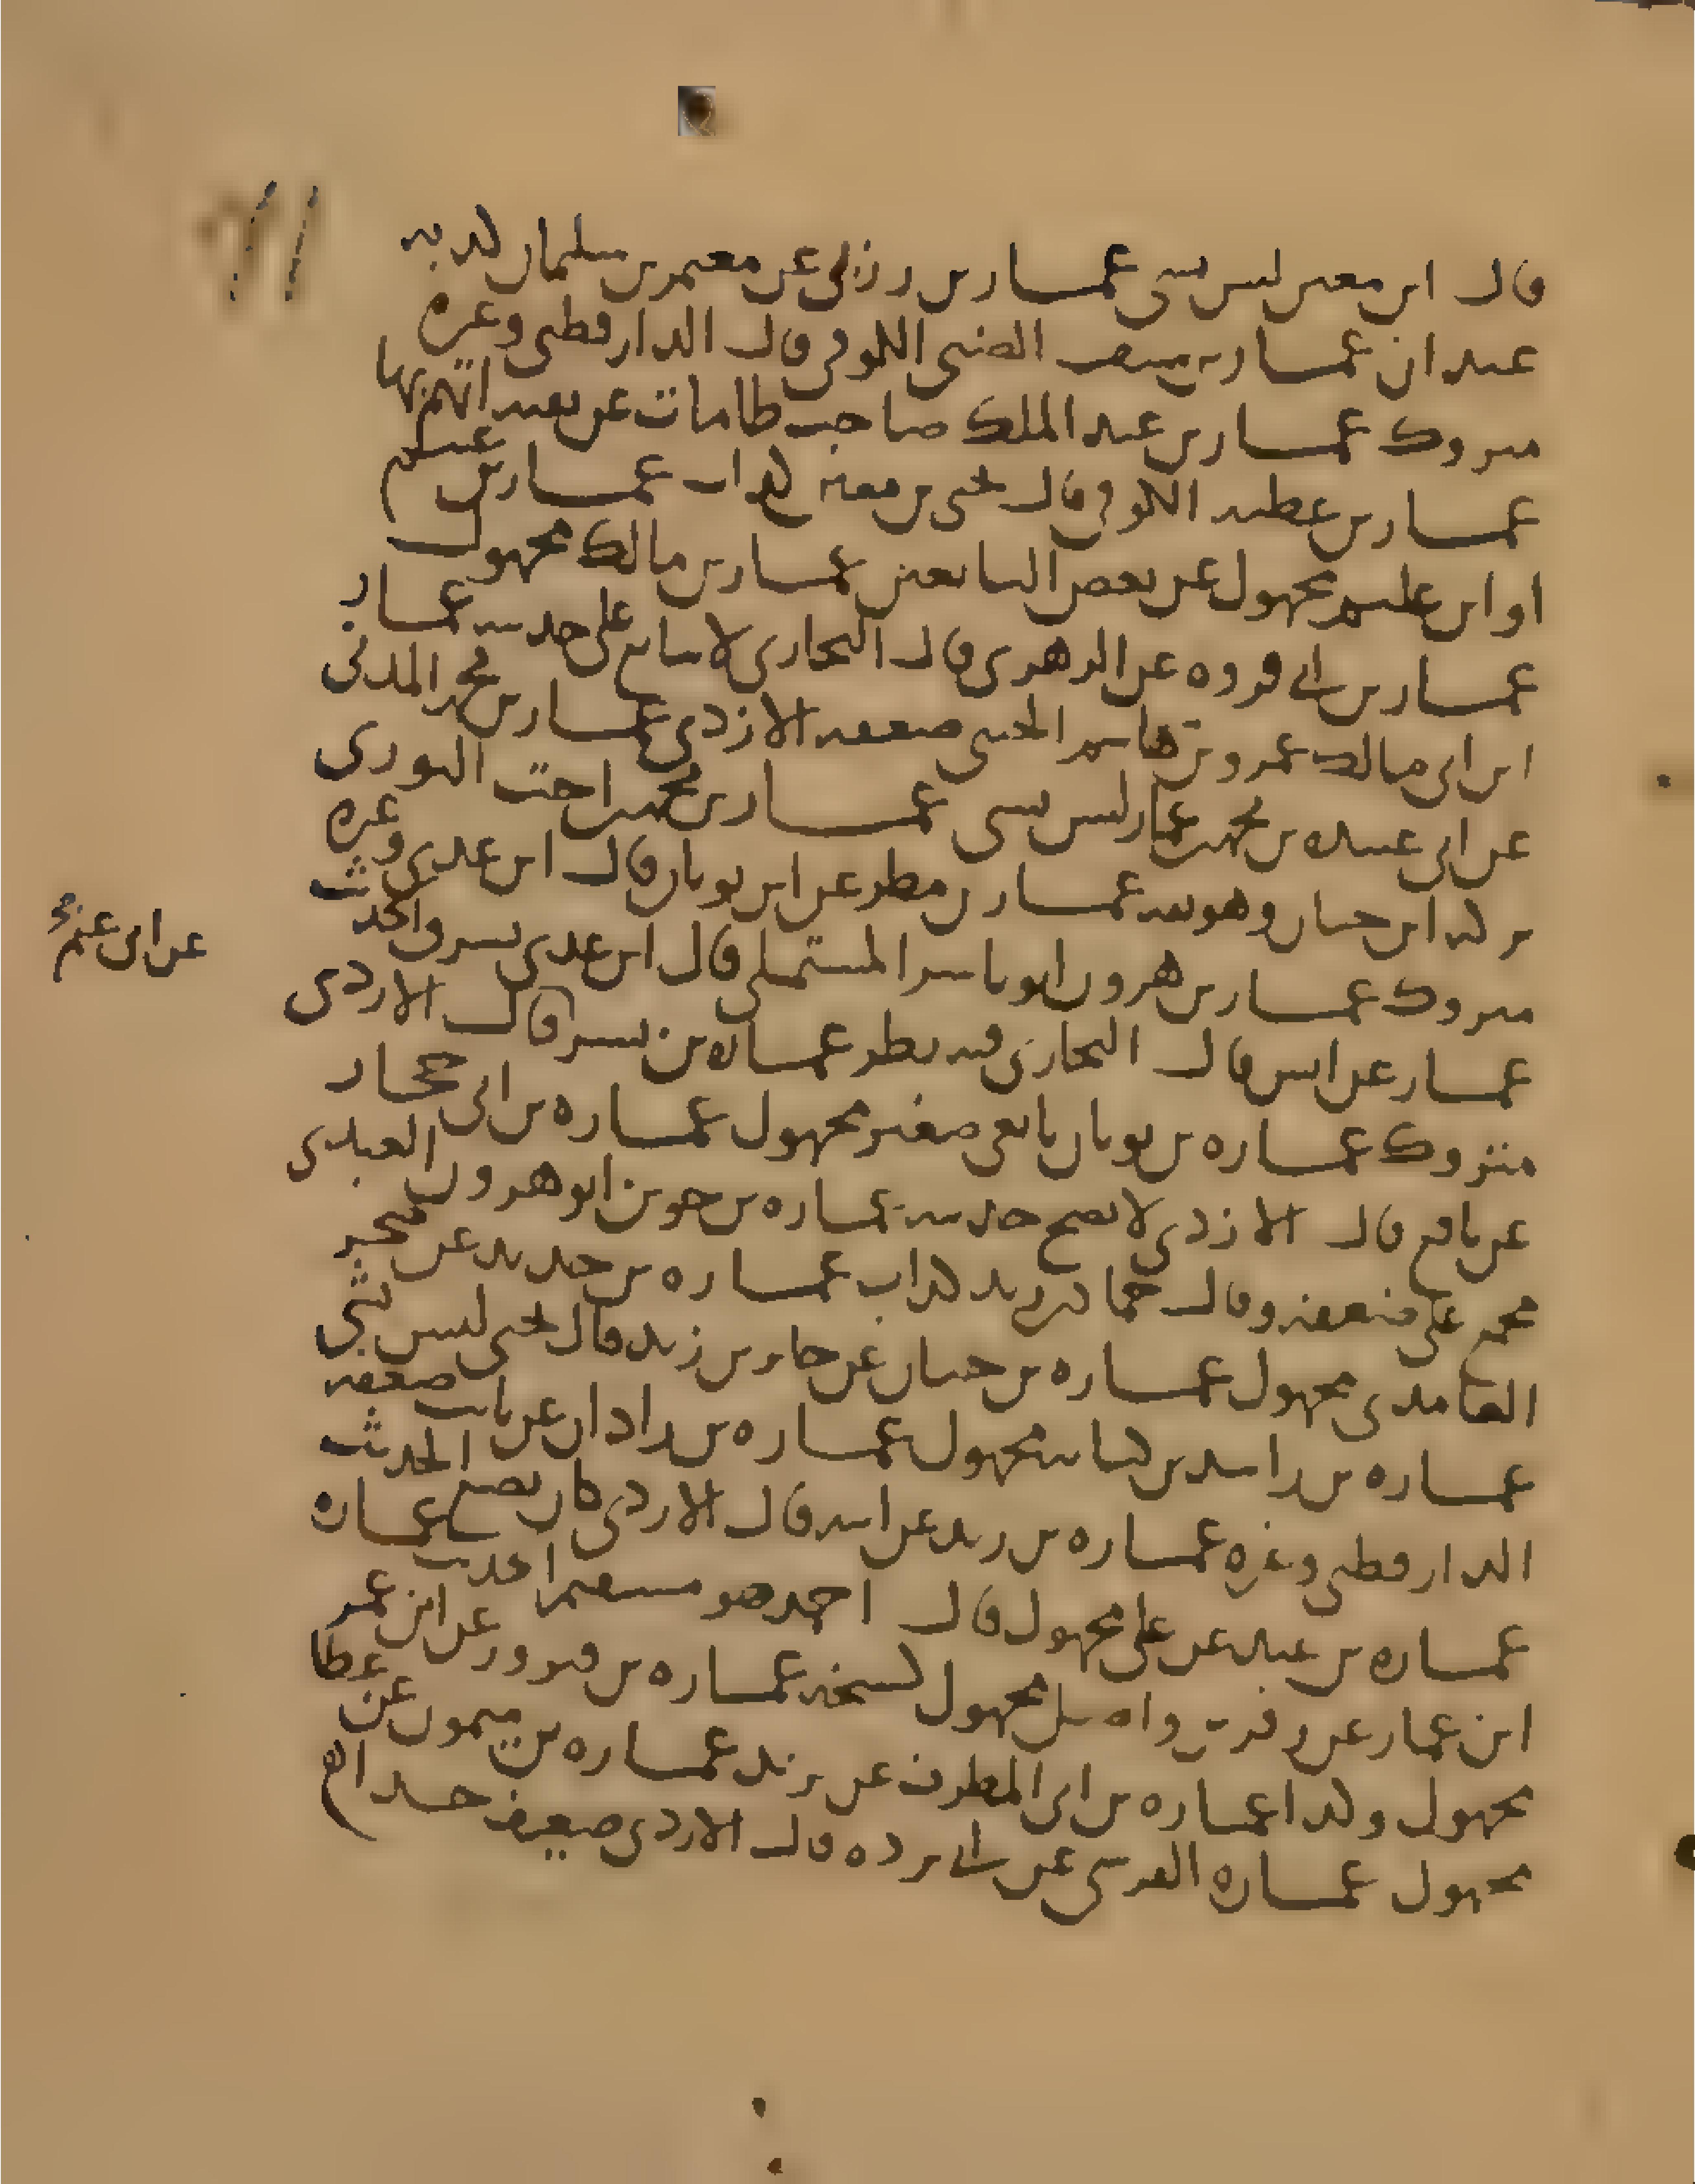 قال ابن معين ليس بشي عمار بن رزيق عن معتمر بن سليمان كذبه
عبدان عمار بن سيف الضبي الكوفي قال الدارقطني وغيره
متروك عمار بن عبد الملك صاحب طامات عن بقية اتهم بها
عمار بن عطيه الكوفي قال يحيى بن معين كذاب عمار بن عليم
او ابن عليم مجهول عن بعض التابعين عمار بن مالك مجهول
عمار بن ابي فروه عن الزهري قال البخاري لا يتابع على حديثه عمار
ابن ابي مالك عمرو بن هاشم الجنبي ضعفه الازدي عمار بن محمد المدني
عن ابي عبيده بن محمد بن عمار ليس بشي عمار بن محمد بن اخت الثوري
تركه ابن حبان وهو ثقه عمار بن مطر عن ابن ثوبان قال ابن عدي وغيره
متروك عمار بن هرون ابو ياسر المستملي قال ابن عدي يسرق الحديث
عمار عن انس قال البخاري فيه نظر عماره بن بشر قال الازدي
متروك عماره بن ثوبان تابعي صغير مجهول عماره بن ابي حجار
عن نافع قال الازدي لا يصح حديثه عماره بن جوين ابو هرون العبدي
مجمع على ضعفه وقال حماد بن زيد كذاب عماره بن حديد عن صخر
الغامدي مجهول عماره بن حيان عن جابر بن زيد قال يحيى ليس بشي
عماره بن راشد بن كنانه مجهول عماره بن زاذان عن ثابت ضعفه
الدارقطني وغيره عماره بن زيد عن ابيه قال الازدي كان يضع الحديث
عماره بن عبد عن علي مجهول قال احمد هو مستقيم الحديث عماره
ابن عمار عن زفر بن واصل مجهول كشيخه عماره بن فيروز عن ابن عمر
مجهول وكذا عماره بن ابي المطرف عن يزيد عماره بن ميمون عن عطا
مجهول عماره القرشي عن ابي برده قال الازدي ضعيف جدا
عن ابن